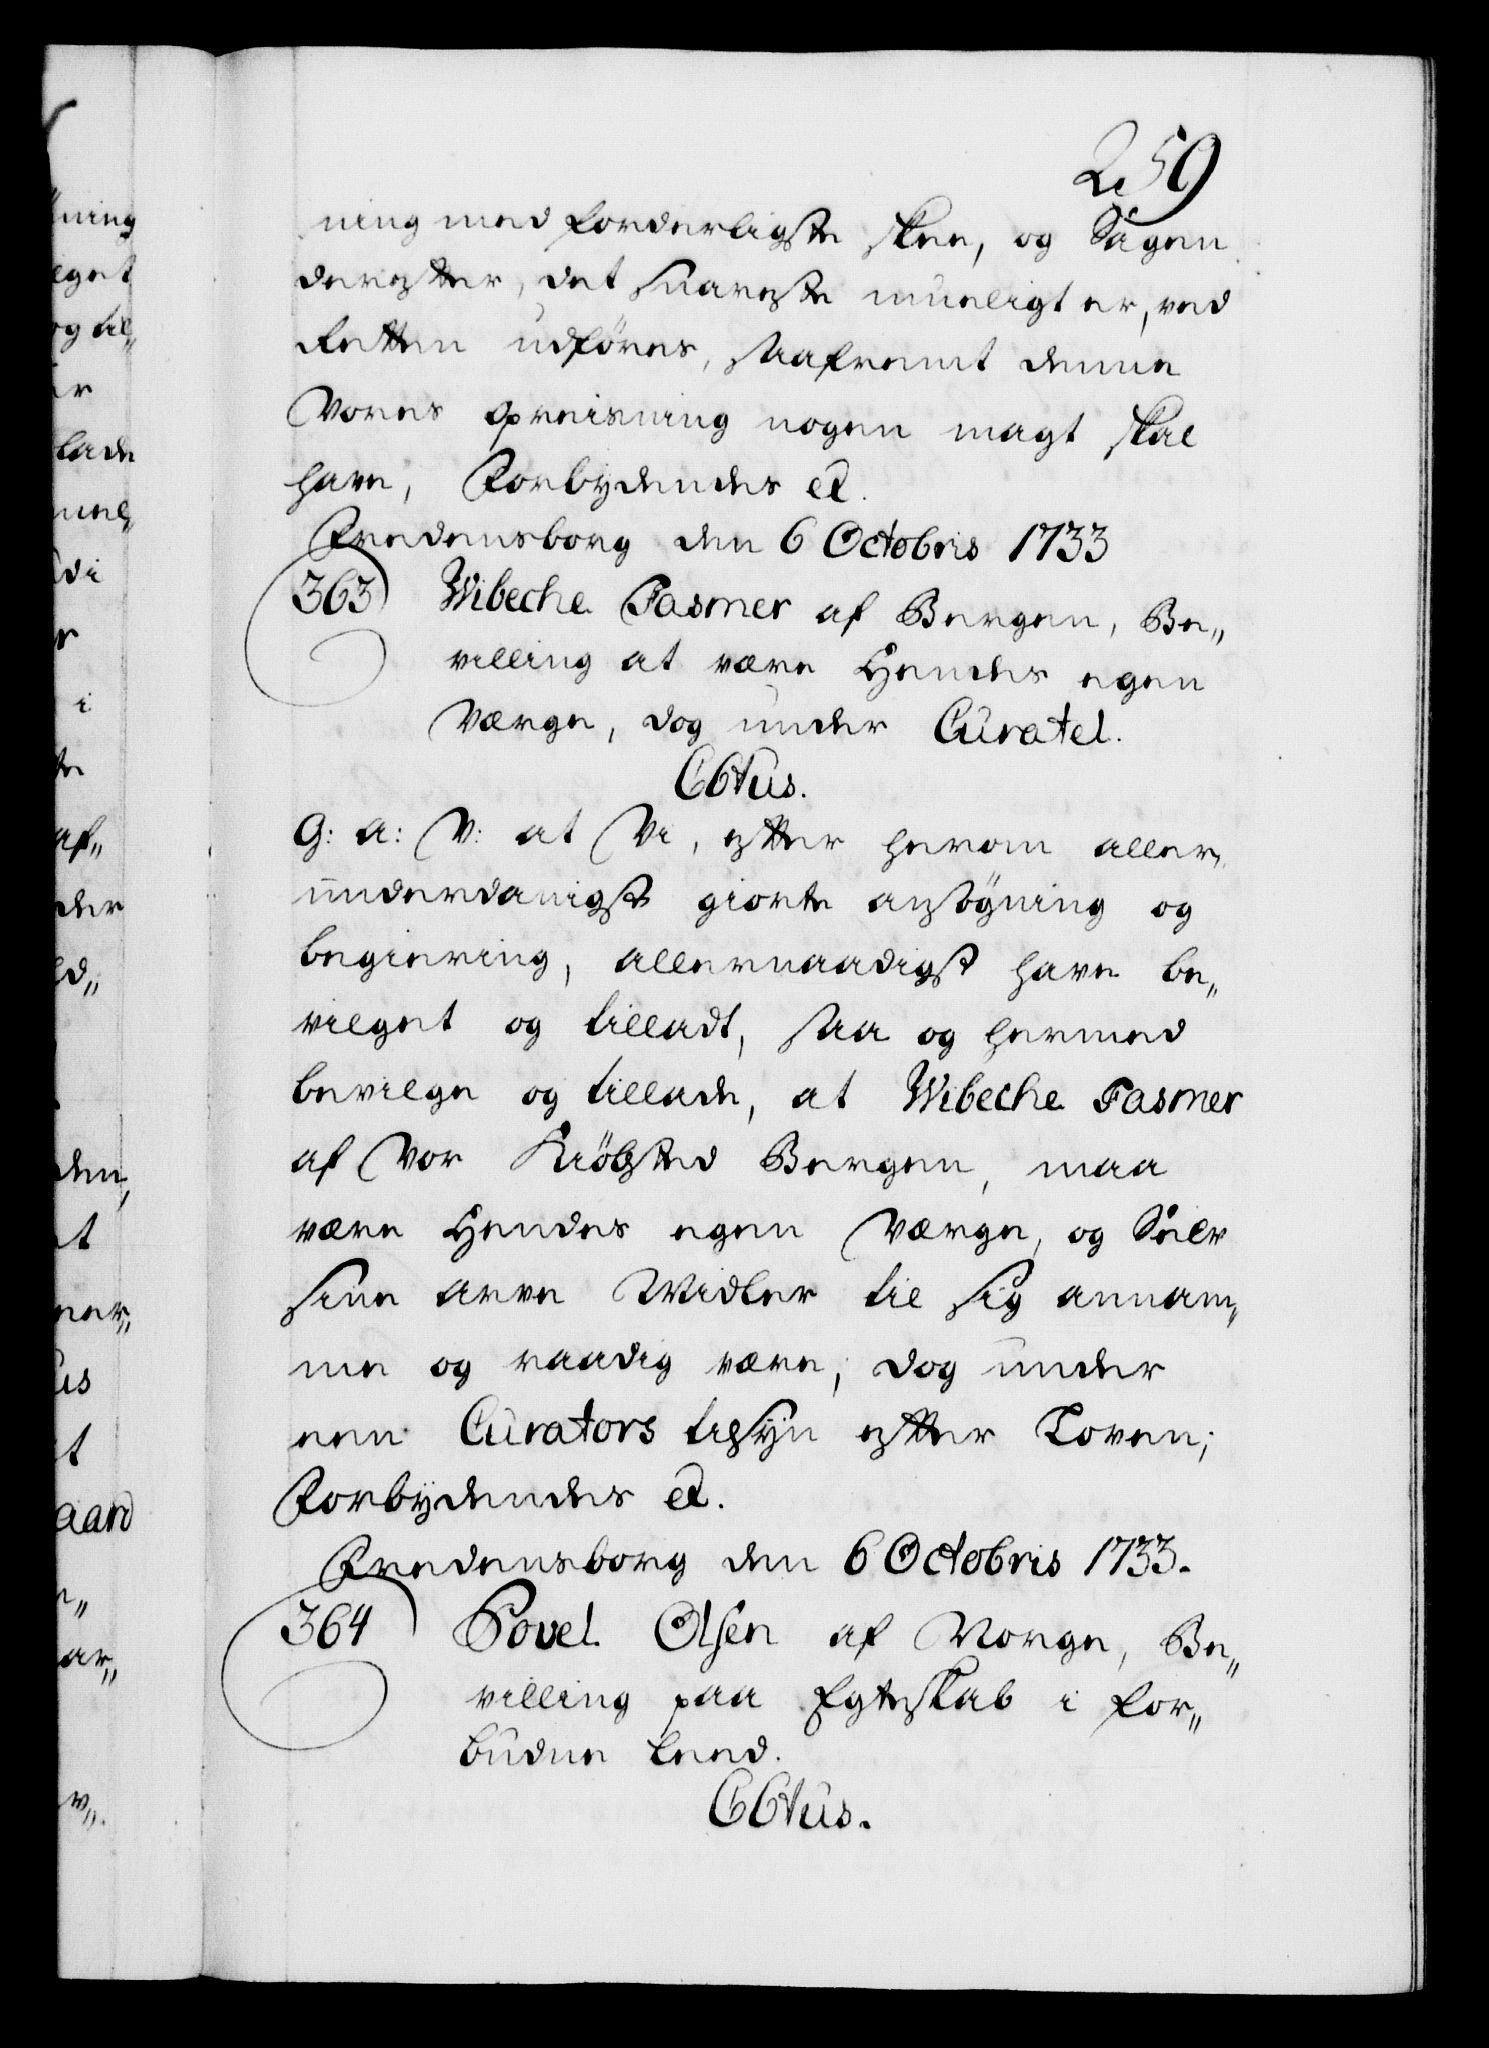 259
ning med forderligste skee, og Sagen
derefter, det snareste mueligt er, ved
Retten udføres, saafremt denne
Vores opreisning nogen magt skal
have, Forbydendes et.
Fredensborg den 6 Octobris 1733
363 Wibeche Fasmer af Bergen, Be„
villing at være Hendes egen
Værge, dog under Curatel.
C6tus.
G: a: V: at Vi, efter herom aller„
underdanigst giorte ansøgning og
begiering, allernaadigst have be„
vilget og tilladt, saa og hermed
bevilge og tillade, at Wibeche Fasmer
af Vor Kiøbsted Bergen, maa
være Hendes egen Værge, og Selv
sine arve Midler til sig annam„
me og raadig være, dog under
een Curators tilsyn efter Loven;
Forbydendes et.
Fredensborg den 6 Octobris 1733.
364 Povel Olsen af Norge, Be„
villing paa Egteskab i for„
budne Leed.
C6tus.